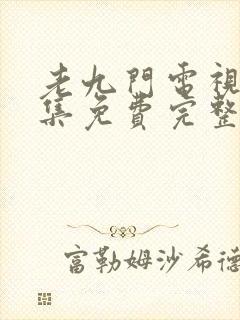 老九門電視
集免費完整
富勒姆沙希德